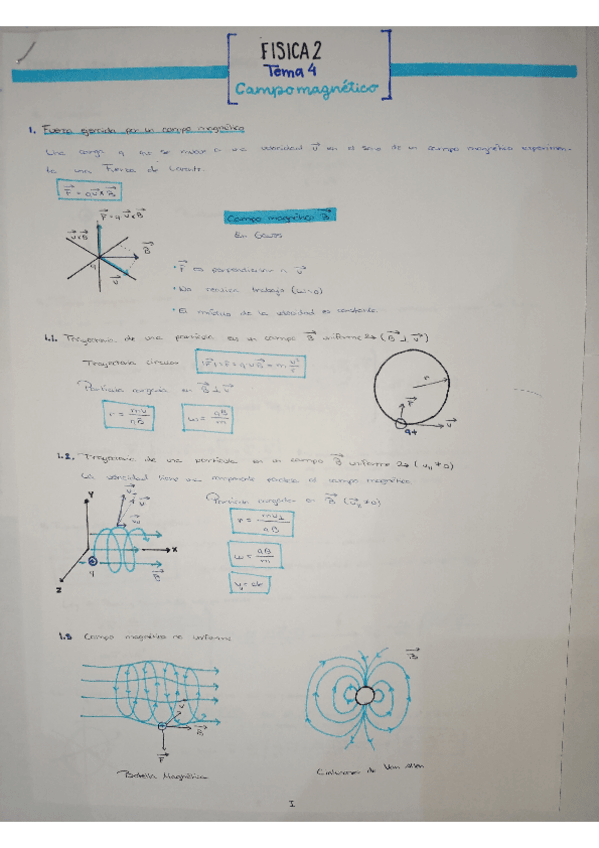 FISICA 2
Tema 4
Campo magnético
1. Fuerza ejercida por un campo magnético
Una carga q que se mueve a una velocidad v⃗ en el seno de un campo magnético experimen-
ta una Fuerza de Lorentz.
F⃗ = q v⃗ x B⃗
F⃗ = q v⃗ x B⃗
v⃗ x B⃗
B⃗
q
v⃗
Campo magnético: B⃗
En Gauss
• F⃗ es perpendicular a v⃗
• No realiza trabajo (w=0)
• El módulo de la velocidad es constante.
1.1. Trayectoria de una partícula en un campo B⃗ uniforme (B⃗ ⊥ v⃗)
Trayectoria circular
r
F⃗
v⃗
q+
Partícula B⃗ ⊥ v⃗
r = mv / qB
ω = qB / m
1.2. Trayectoria de una partícula en un campo B⃗ uniforme
La velocidad tiene una componente paralela al campo magnético
B⃗
r = mv⊥ / qB
ω = qB / m
Y
X
Z
B⃗
1.3 Campo magnético no uniforme
B⃗
F⃗
B⃗
Botella Magnética
Cinturones de Van Allen
I